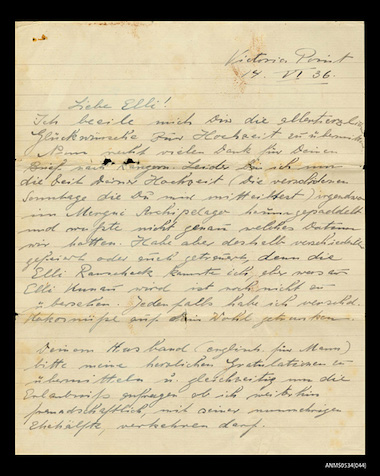 Victoria Point
14. VI 36.
Liebe Elli!
Ich beeile mich Dir die allerherzl.
Glückwünsche zur Hochzeit zu übermitteln
Nun recht vielen Dank für Deinen
Brief nach Rangoon. Leider bin ich um
die Zeit Deiner Hochzeit (Die verschiedenen
Sonntage die Du mir mitteiltest) irgendwo
im Mergui Archipelago herumgepaddelt
und wusste nicht genau welches Datum
wir hatten. Habe aber deshalb verschiedentl.
gefeiert oder auch getrauert, denn die
Elli kannte ich, aber was aus
Elli wird ist noch nicht zu
übersehen. Jedenfalls habe ich verschd.
Kokosnüsse auf Dein Wohl getrunken.
Deinem Husband (englisch für Mann)
bitte meine herzlichen Gratulationen zu
übermitteln u. gleichzeitig um die
Erlaubnis anfragen ob ich weiterhin
freundschaftlich mit seiner nunmehrigen
Ehehälfte verkehren darf.
ANMS0534[044]